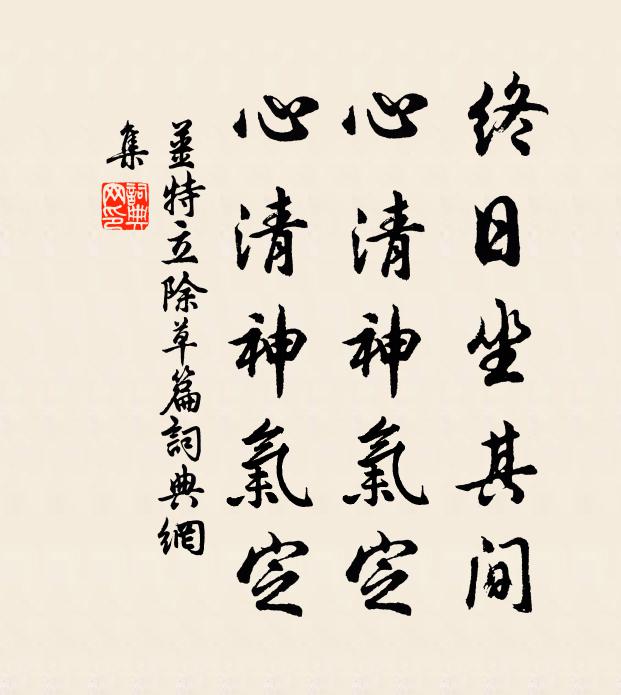 終日坐其間
心清神氣定
心清神氣定
薑特立除草篇詞典網
集
詞典
网印